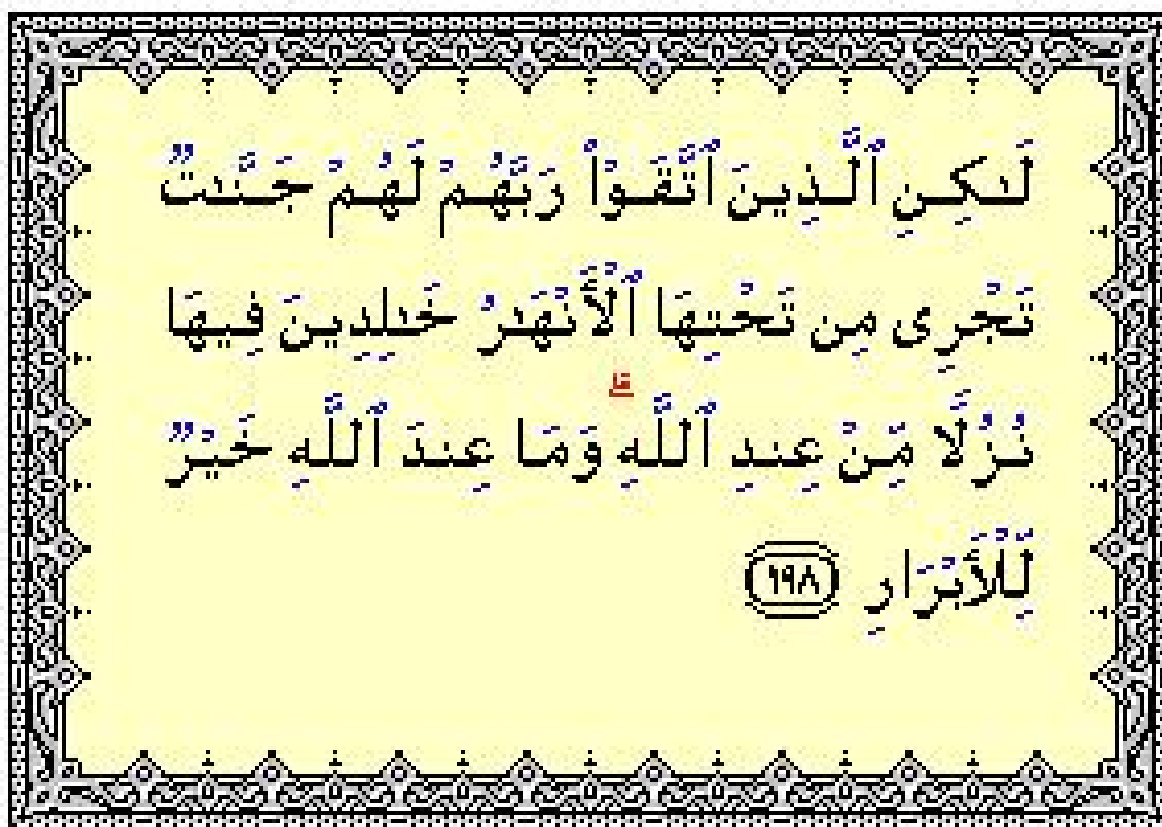 لَـٰكِنِ ٱلَّذِينَ ٱتَّقَوْا۟ رَبَّهُمْ لَهُمْ جَنَّـٰتٌ
تَجْرِى مِن تَحْتِهَا ٱلْأَنْهَـٰرُ خَـٰلِدِينَ فِيهَا
نُزُلًا مِّنْ عِندِ ٱللَّهِ ۗ وَمَا عِندَ ٱللَّهِ خَيْرٌ
لِّلْأَبْرَارِ ١٩٨